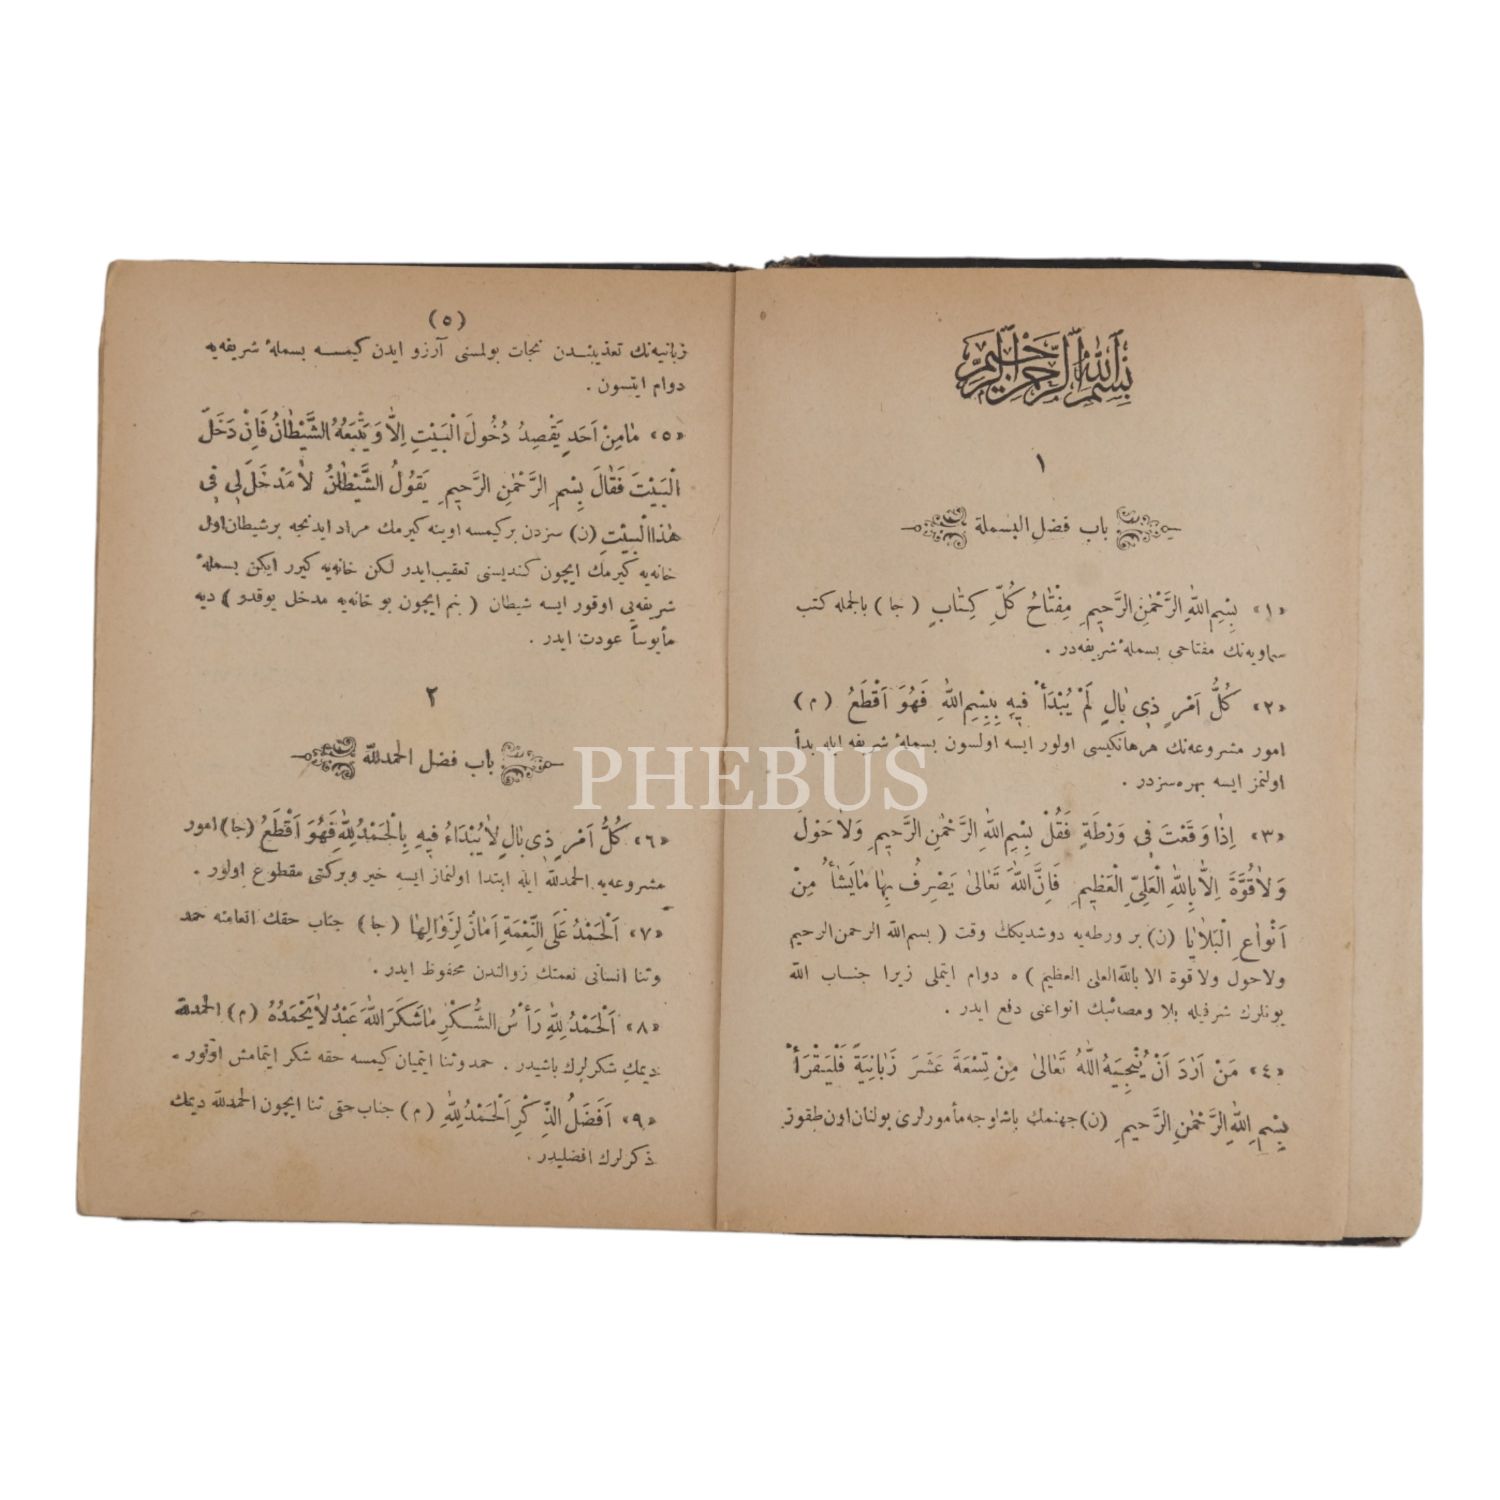 بِسْمِ اللّٰهِ الرَّحْمٰنِ الرَّحِيمِ
١
باب فضل البسملة
«١» بِسْمِ اللّٰهِ الرَّحْمٰنِ الرَّحِيمِ مِفْتَاحُ كُلِّ كِتَابٍ (جا) بالجمله كتب
سماويه‌نك مفتاحی بسملهٔ شریفه‌در .
«٢» كُلُّ اَمْرٍ ذِى بَالٍ لَمْ يُبْدَأْ فِيهِ بِبِسْمِ اللّٰهِ فَهُوَ اَقْطَعُ (م)
امور مشروعه‌نك هرهانكیسی اولور ایسه اولسون بسملهٔ شریفه ایله بدأ
اولنمز ایسه بهره‌سزدر .
«٣» اِذَا وَقَعْتَ فِى وَرْطَةٍ فَقُلْ بِسْمِ اللّٰهِ الرَّحْمٰنِ الرَّحِيمِ وَلَاحَوْلَ
وَلَاقُوَّةَ اِلَّا بِاللّٰهِ الْعَلِىِّ الْعَظِيمِ فَاِنَّ اللّٰهَ تَعَالٰى يَصْرِفُ بِهَا مَايَشَأُ مِنْ
اَنْوَاعِ الْبَلَايَا (ن) بر ورطه‌یه دوشدیكك وقت (بسم‌الله الرحمن الرحیم
ولاحول ولاقوة الا بالله العلی العظیم) ه دوام ایتملی زیرا جناب الله
بونلرك شرفیله بلا ومصائبك انواعنی دفع ایدر .
«٤» مَنْ اَرَادَ اَنْ يُنْجِيَهُ اللّٰهُ تَعَالٰى مِنْ تِسْعَةَ عَشَرَ زَبَانِيَةً فَلْيَقْرَأْ
بِسْمِ اللّٰهِ الرَّحْمٰنِ الرَّحِيمِ (ن) جهنمك باشلوجه مأمورلری بولنان اون طقوز
(٥)
زبانیه‌نك تعذیبندن نجات بولمسنی آرزو ایدن كیمسه بسملهٔ شریفه‌یه
دوام ایتسون .
«٥» مَامِنْ اَحَدٍ يَقْصِدُ دُخُولَ الْبَيْتِ اِلَّا وَيَتْبَعُهُ الشَّيْطَانُ فَاِنْ دَخَلَ
الْبَيْتَ فَقَالَ بِسْمِ الرَّحْمٰنِ الرَّحِيمِ يَقُولُ الشَّيْطَانُ لَا مَدْخَلَ لِى فِى
هٰذَا الْبَيْتِ (ن) سزدن بركیمسه اوینه كیرمك مراد ایدنجه برشیطان اول
خانه‌یه كیرمك ایچون كندیسنی تعقیب ایدر لكن خانه‌یه كیرر ایكن بسملهٔ
شریفه‌یی اوقور ایسه شیطان (بنم ایچون بو خانه‌یه مدخل یوقدو) دیه
مأیوساً عودت ایدر .
٢
باب فضل الحمدلله
«٦» كُلُّ اَمْرٍ ذِى بَالٍ لَايُبْدَاءُ فِيهِ بِالْحَمْدُ لِلّٰهِ فَهُوَ اَقْطَعُ (جا) امور
مشروعه‌یه الحمدلله ایله ابتدا اولنماز ایسه خیر وبركتی مقطوع اولور .
«٧» اَلْحَمْدُ عَلَى النِّعْمَةِ اَمَانٌ لِزَوَالِهَا (جا) جناب حقك انعامنه حمد
وثنا انسانی نعمتك زوالندن محفوظ ایدر .
«٨» اَلْحَمْدُ لِلّٰهِ رَأْسُ الشُّكْرِ مَاشَكَرَ اللّٰهَ عَبْدٌ لَايَحْمَدُهُ (م) الحمدلله
دیمك شكرلرك باشیدر . حمد وثنا ایتمیان كیمسه حقه شكر ایتمامش اولور .
«٩» اَفَضَلُ الذِّكْرِ اَلْحَمْدُ لِلّٰهِ (م) جناب حقی ثنا ایچون الحمدلله دیمك
ذكرلرك افضلیدر .
PHEBUS